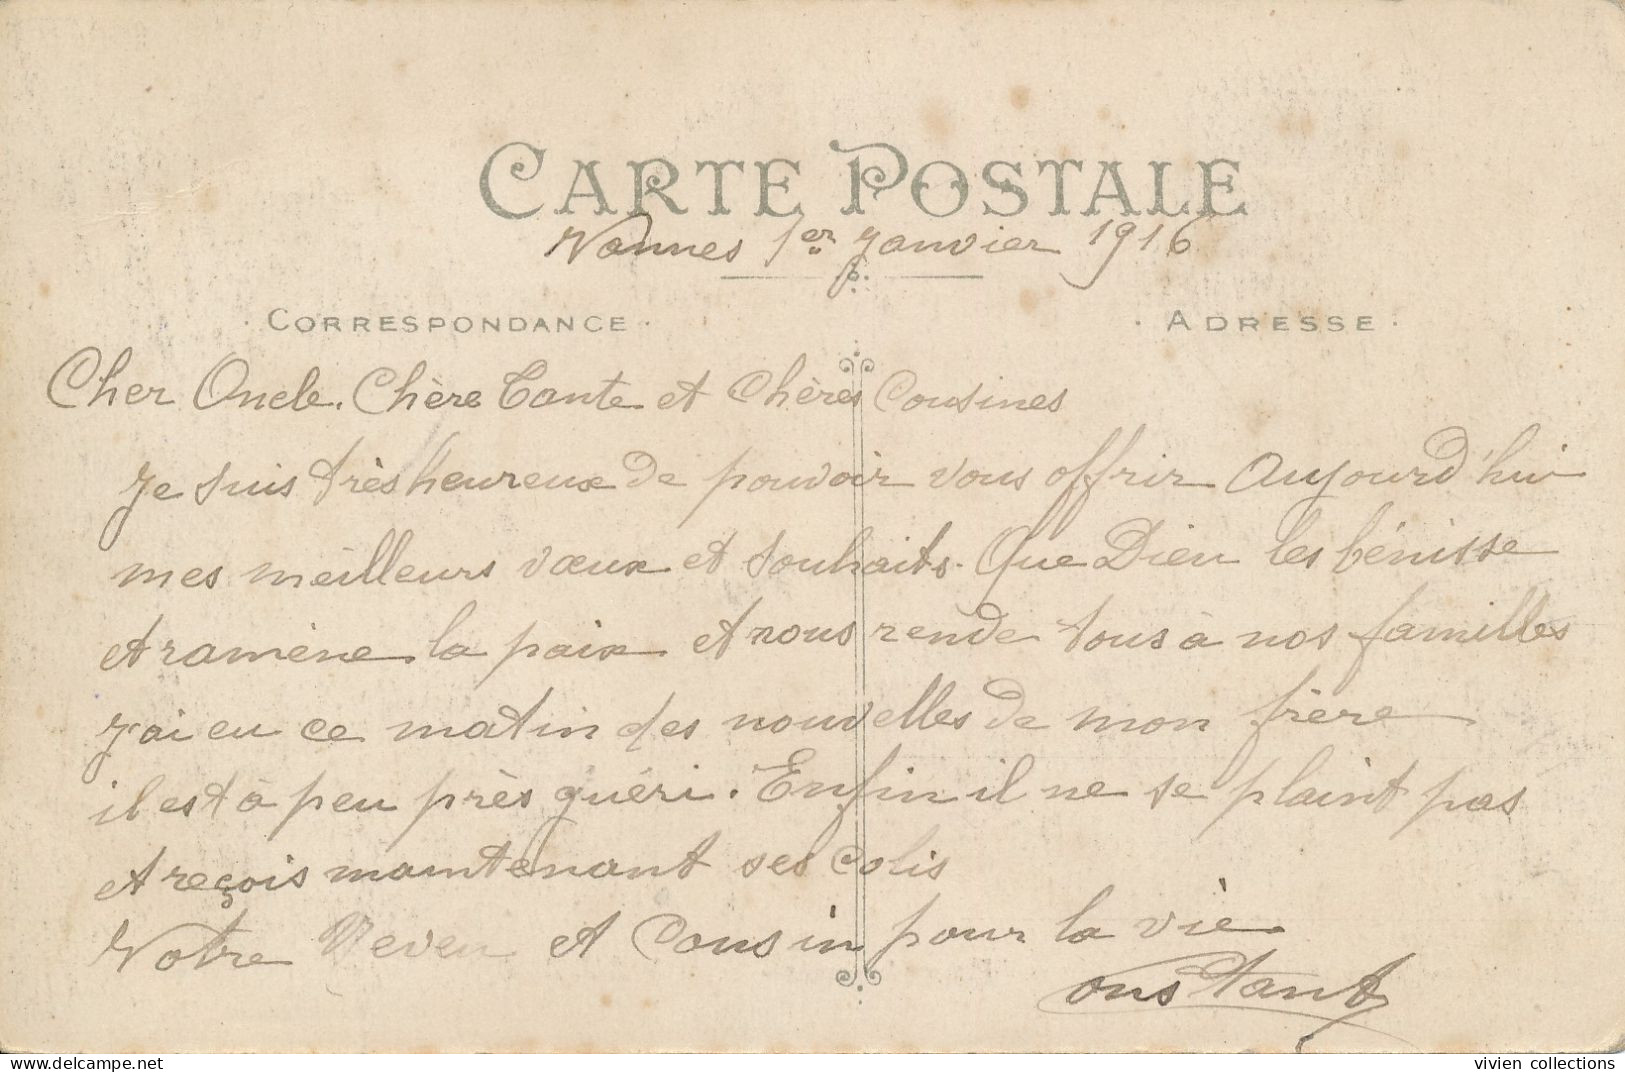 CARTE POSTALE
Vannes 1er Janvier 1916
CORRESPONDANCE
ADRESSE
Cher Oncle. Chère Tante et Chères Cousines
Je suis très heureux de pouvoir vous offrir Aujourd'hui
mes meilleurs vœux et souhaits. Que Dieu les bénisse
et ramène la paix et nous rende tous à nos familles
J'ai eu ce matin des nouvelles de mon frère
il est à peu près guéri. Enfin il ne se plaint pas
et reçois maintenant ses colis
Votre Neveu et Cousin pour la vie
Constant
vivien collections